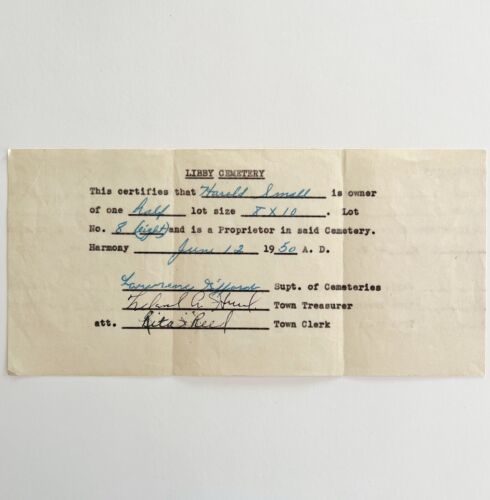 LIBBY CEMETERY
This certifies that Harold Small is owner
of one half lot size 8 X 10. Lot
No. 8 (eight) and is a Proprietor in said Cemetery.
Harmony June 12 1950 A. D.
Lawrence Supt. of Cemeteries
Town Treasurer
att. Rita Reed Town Clerk